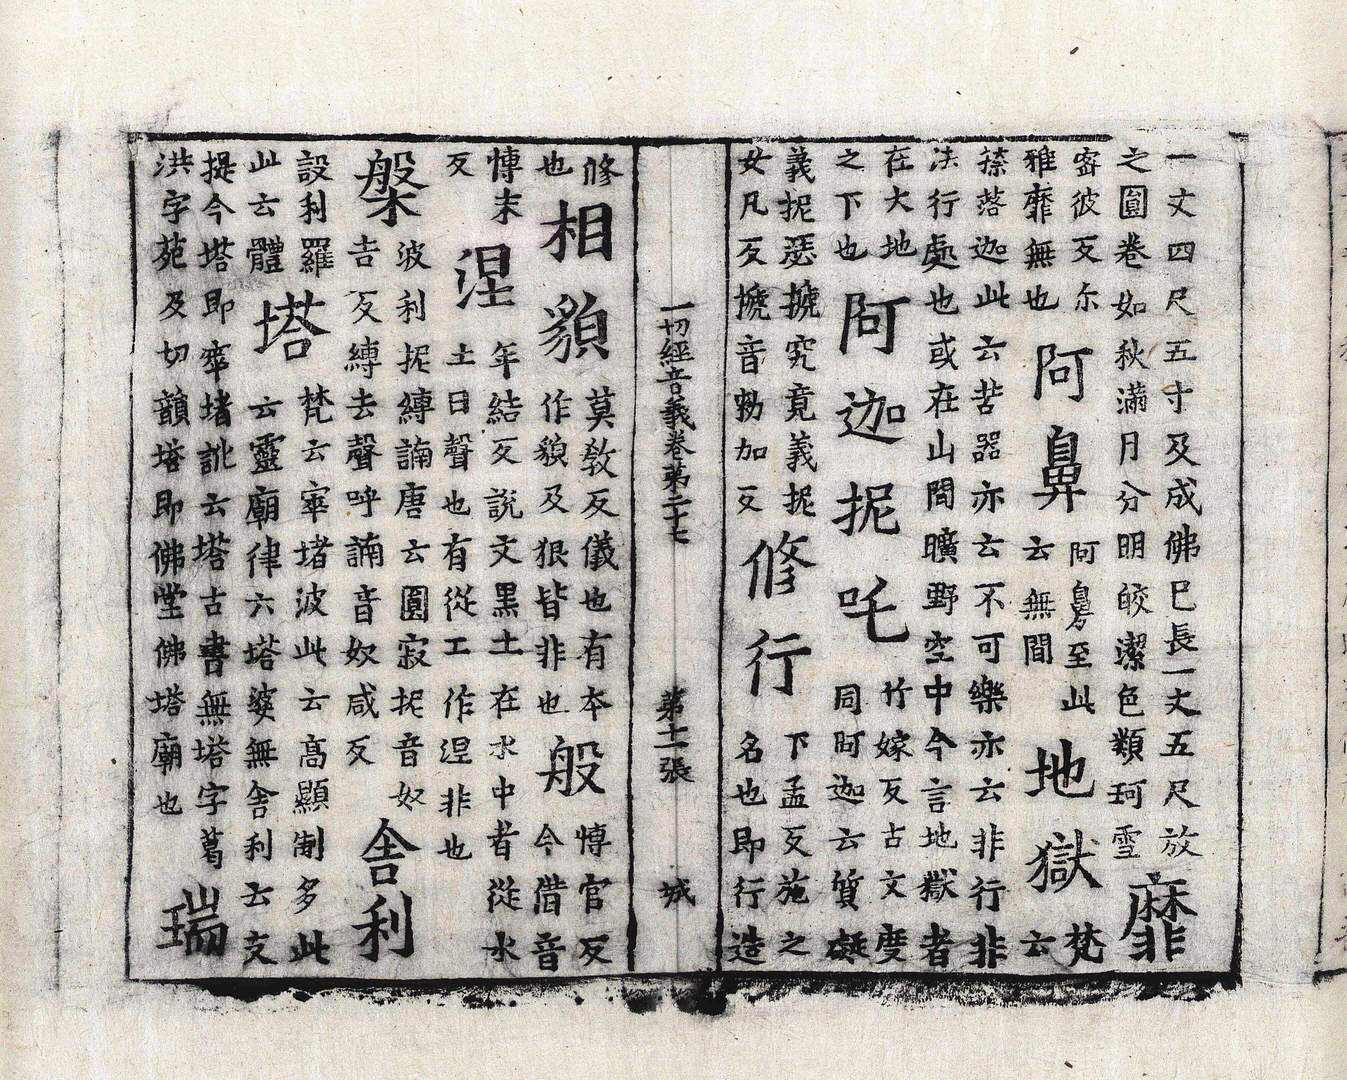 一丈四尺五寸及成佛已長一丈五尺放
之圓卷如秋滿月分明皎潔色類珂雪
靡
密彼反尒
雅靡無也
阿鼻
阿鼻至此
云無間
地獄
梵
云
捺落迦此云苦器亦云不可樂亦云非行非
法行處也或在山間曠野空中今言地獄者
在大地
之下也
阿迦抳吒
竹嫁反古文度
同阿迦云質礙
義抳瑟搋究竟義抳
女凡反搋音勑加反
修行
下孟反施之
名也即行造
一切經音義卷第二十七 第十一張 城
修
也
相貌
莫敎反儀也有本
作貌及狠皆非也
般
愽官反
今借音
愽末
反
涅
年結反說文黑土在水中者從水
土日聲也有從工作涅非也
槃
波利抳縛諵唐云圓寂抳音奴
吉反縛去聲呼諵音奴咸反
舍利
設利羅
此云體
塔
梵云窣堵波此云高顯制多此
云靈廟律六塔婆無舍利云支
提今塔即窣堵訛云塔古書無塔字葛
洪字苑及切韻塔即佛堂佛塔廟也
瑞